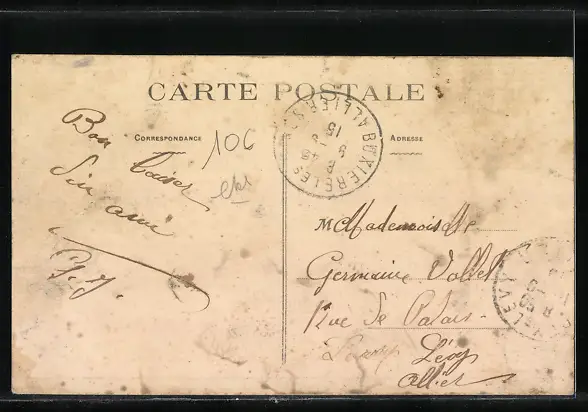 CARTE POSTALE
CORRESPONDANCE
106
ADRESSE
BUXIERE LES
ALLIER
Bon baiser
d'un ami
Mademoiselle
Germaine Vallet
Rue de Palais
Lévy
Allier